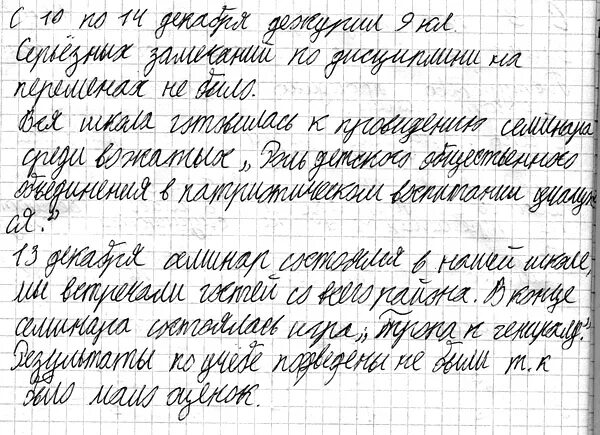 С 10 по 14 декабря дежурил 9 кл.
Серьёзных замечаний по дисциплини на
переменах не было.
Вся школа готовилась к провидению семинара
среди вожатых „Роль детского общественного
объединения в патриотическом воспитании учащих
ся."
13 декабря семинар состоялся в нашей школе,
мы встречали гостей со всего района. В конце
семинара состоялась игра „Тропа к генералу."
Результаты по учёбе подведены не были т.к
было мало оценок.